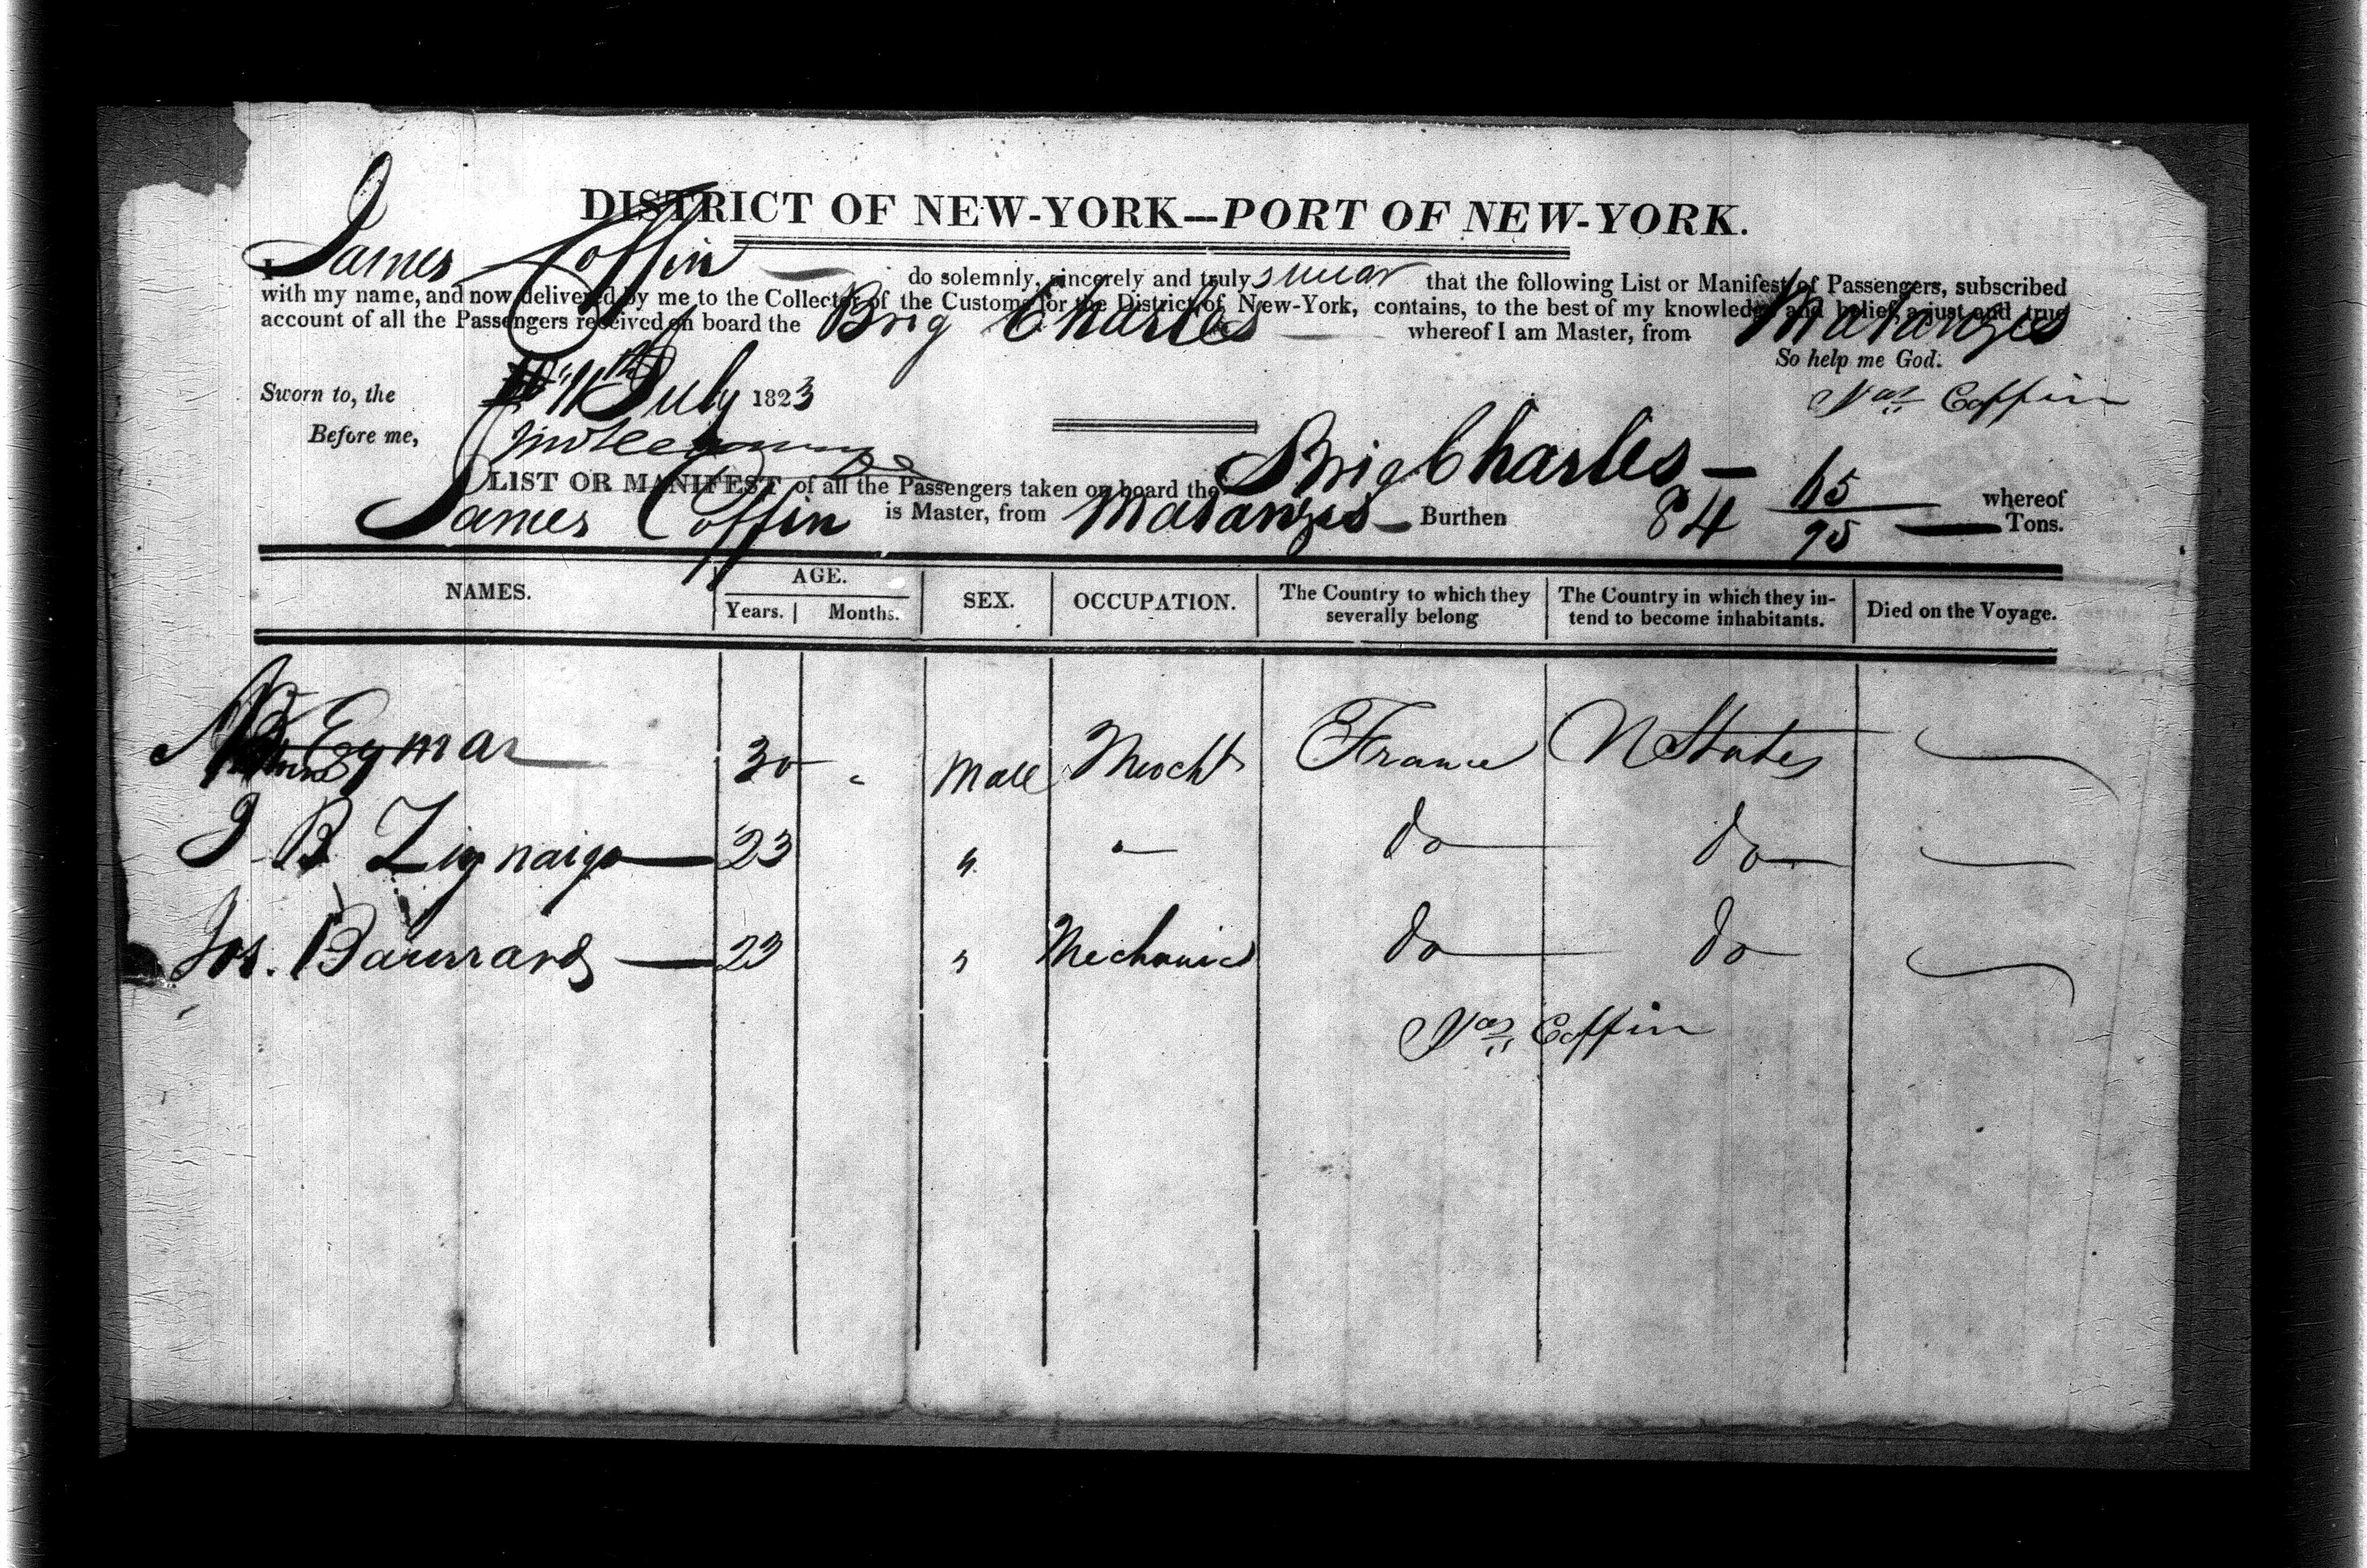 DISTRICT OF NEW-YORK---PORT OF NEW-YORK.
I James Coffin do solemnly, sincerely and truly swear that the following List or Manifest of Passengers, subscribed
with my name, and now delivered by me to the Collector of the Customs for the District of New-York, contains, to the best of my knowledge and belief, a just and true
account of all the Passengers received on board the Brig Charles whereof I am Master, from Matanzes
So help me God.
Sworn to, the 11th July 1823
Jas Coffin
Before me,
LIST OR MANIFEST of all the Passengers taken on board the Brig Charles whereof
James Coffin is Master, from Matanzes Burthen 84 65/95 Tons.
NAMES. AGE. SEX. OCCUPATION. The Country to which they severally belong The Country in which they in-tend to become inhabitants. Died on the Voyage.
Years. Months.
Eymar 30 " Male Mercht France U States
J B Zignaigo 23 " " do do
Jos. 23 " Mechanic do do
Jas Coffin